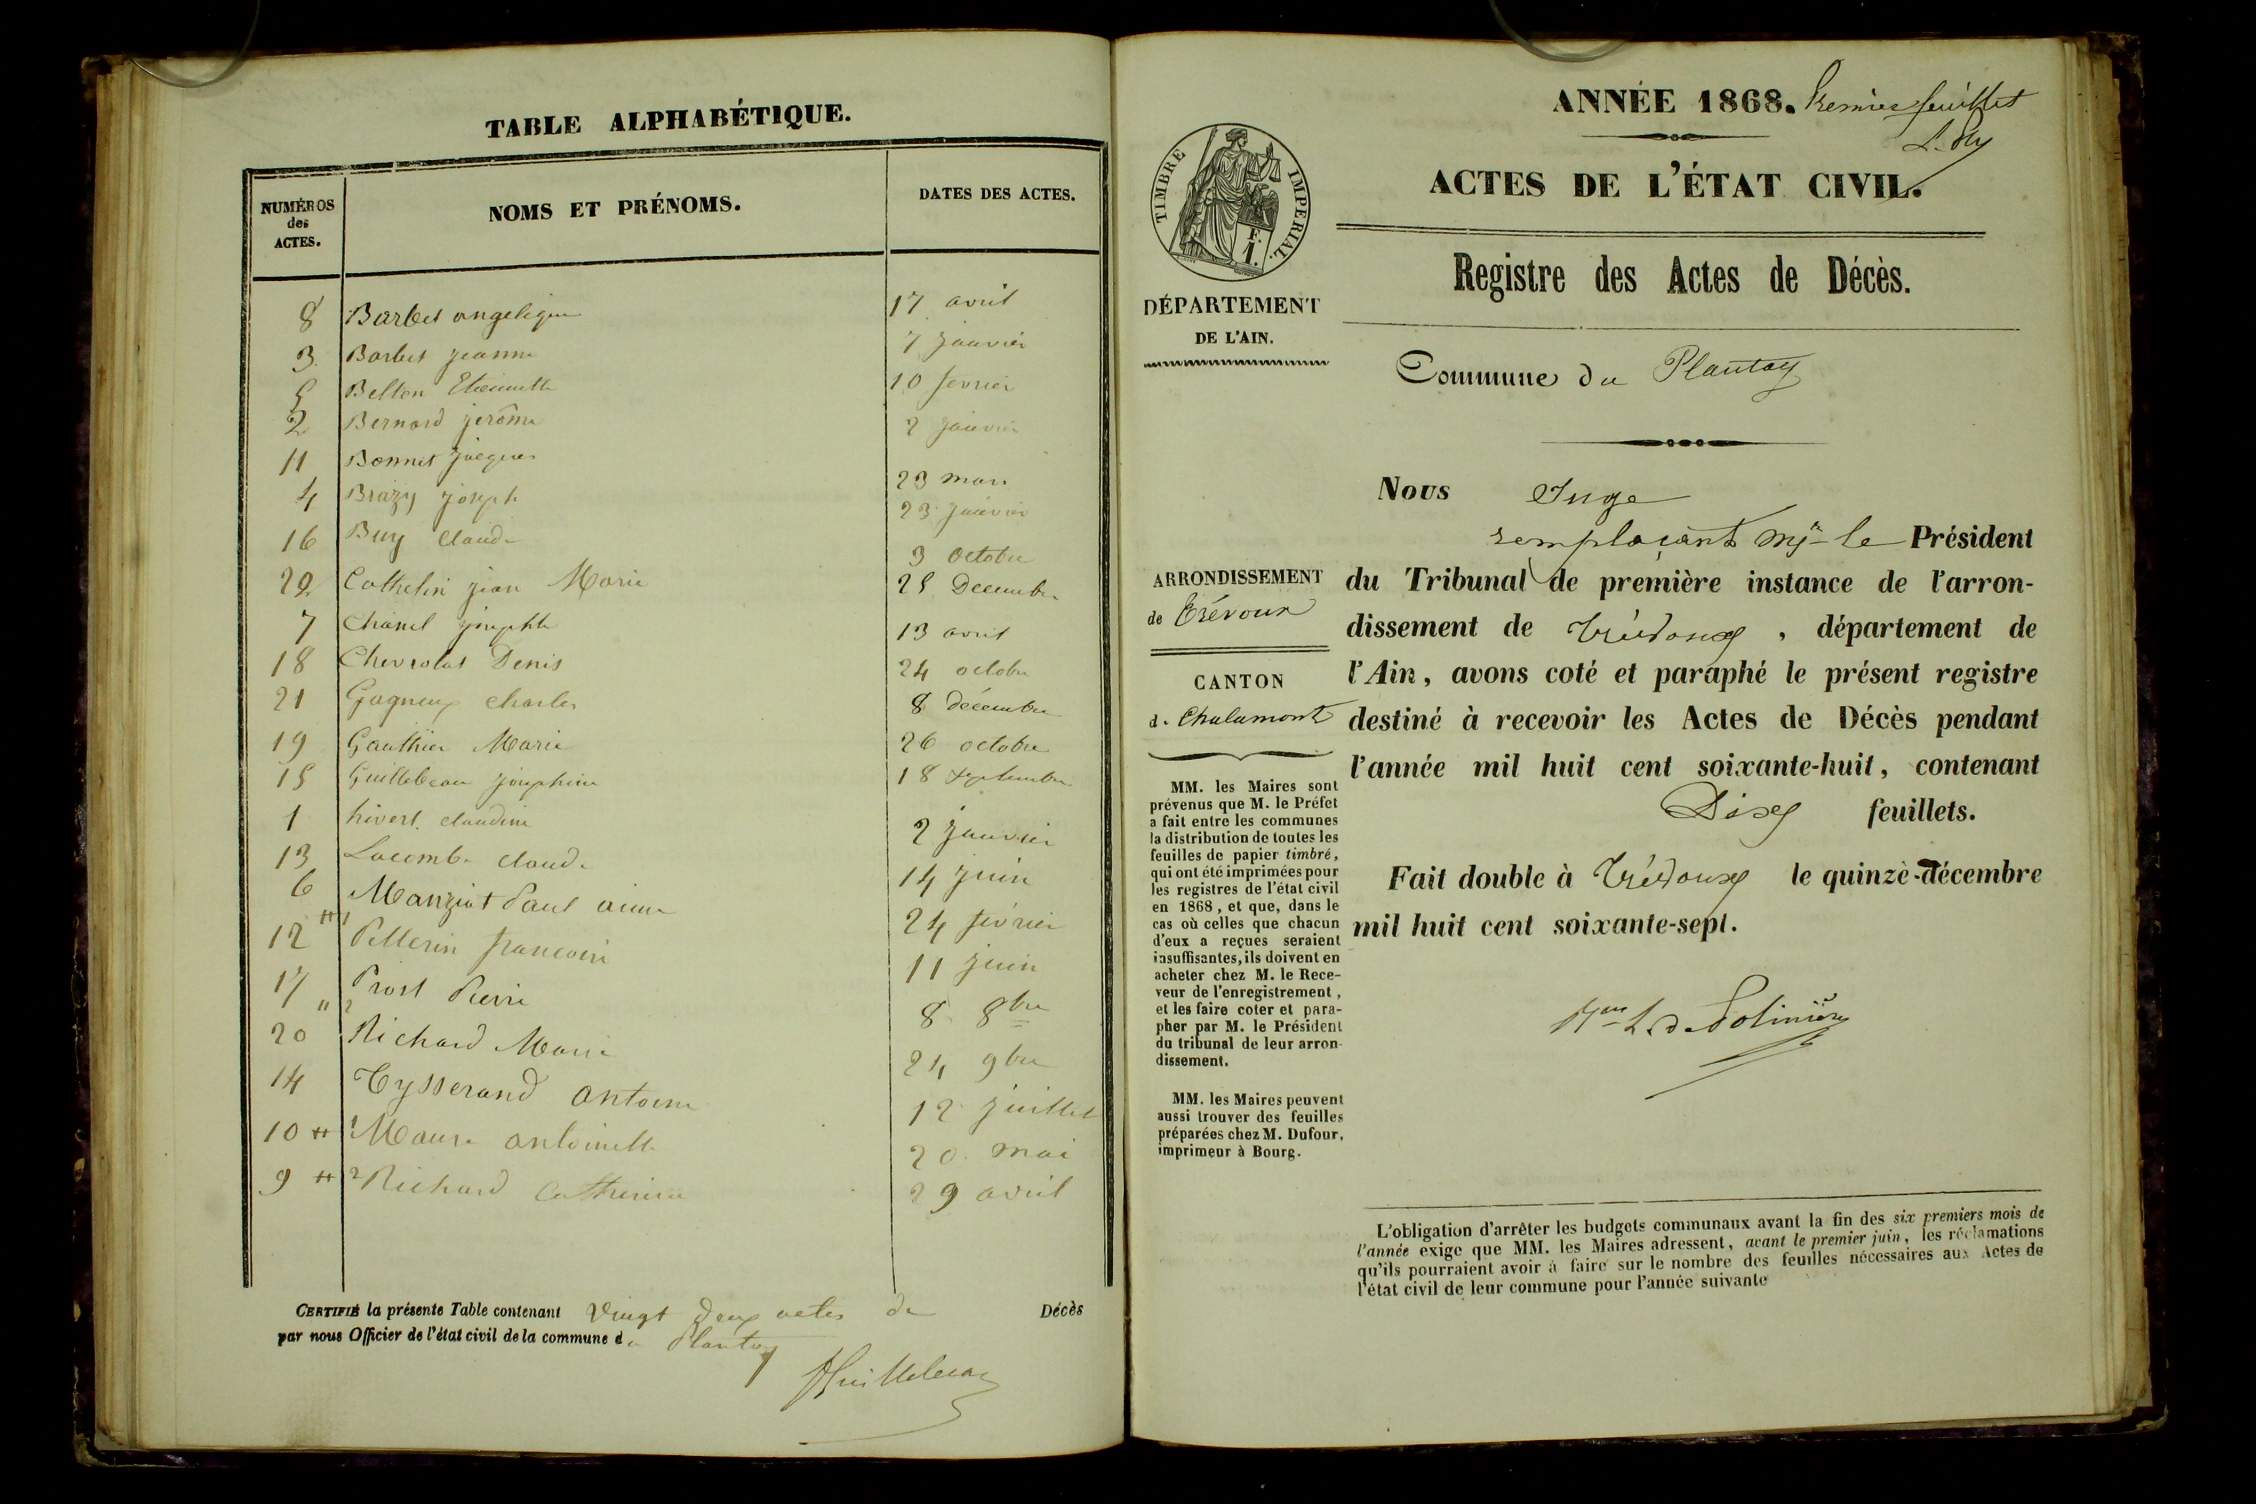 TABLE ALPHABÉTIQUE.
NUMÉROS
des
ACTES.
NOMS ET PRÉNOMS.
DATES DES ACTES.
8 Barbet angelique 17 avril
3 Barbet jeanne 7 janvier
5 Belton Etiennette 10 fevrier
2 Bernard jerôme 2 janvier
11 Bonnet jacques 23 mars
4 Brazy joseph 23 janvier
16 Buy Claude 3 octobre
22 Cathelin jean Marie 25 Decembre
7 Chanel josephte 13 avril
18 Chevrolat Denis 24 octobre
21 Gagneux Charles 8 décembre
19 Gauthier Marie 26 octobre
15 Guillebeau josephine 18 septembre
1 hivert claudine 2 janvier
13 Lacombe claude 14 juin
6 Manziat Paul aimé 24 février
12 Pellerin francois 11 juin
17 Prost Pierre 8 8bre
20 Richard Marie 24 9bre
14 Tysserand antoine 12 juillet
10 Maure antoinette 20 mai
9 Richard Catherine 29 avril
CERTIFIÉ la présente Table contenant vingt deux actes de Décès
par nous Officier de l'état civil de la commune du Plantay
ANNÉE 1868. Premier feuillet
ACTES DE L'ÉTAT CIVIL.
Registre des Actes de Décès.
TIMBRE IMPERIAL.
F.
1.
DÉPARTEMENT
DE L'AIN.
Commune du Plantay
ARRONDISSEMENT
de Trévoux
CANTON
de Chalamont
MM. les Maires sont
prévenus que M. le Préfet
a fait entre les communes
la distribution de toutes les
feuilles de papier timbré,
qui ont été imprimées pour
les registres de l'état civil
en 1868, et que, dans le
cas où celles que chacun
d'eux a reçues seraient
insuffisantes, ils doivent en
acheter chez M. le Rece-
veur de l'enregistrement,
et les faire coter et para-
pher par M. le Président
du tribunal de leur arron-
dissement.
MM. les Maires peuvent
aussi trouver des feuilles
préparées chez M. Dufour,
imprimeur à Bourg.
Nous Juge
remplaçant Mr le Président
du Tribunal de première instance de l'arron-
dissement de Trévoux, département de
l'Ain, avons coté et paraphé le présent registre
destiné à recevoir les Actes de Décès pendant
l'année mil huit cent soixante-huit, contenant
Dix feuillets.
Fait double à Trévoux le quinze décembre
mil huit cent soixante-sept.
L'obligation d'arrêter les budgets communaux avant la fin des six premiers mois de
l'année exige que MM. les Maires adressent, avant le premier juin, les réclamations
qu'ils pourraient avoir à faire sur le nombre des feuilles nécessaires aux Actes de
l'état civil de leur commune pour l'année suivante